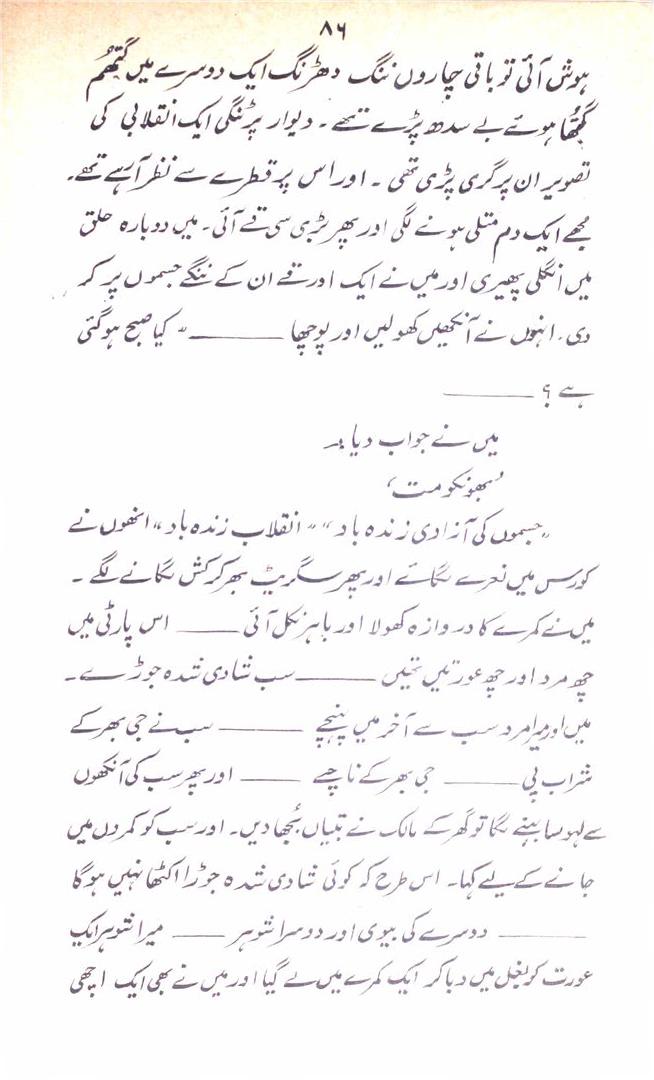 ۸۶
ہوش آئی تو باقی چاروں ننگ دھڑنگ ایک دوسرے میں گتھم
گتھا ہوئے بے سدھ پڑے تھے ۔ دیوار پر ٹنگی ایک انقلابی کی
تصویر ان پر گری پڑی تھی ۔ اور اس پر قطرے سے نظر آرہے تھے۔
مجھے ایک دم متلی ہونے لگی اور پھر بڑی سی قے آئی۔ میں دوبارہ حلق
میں انگلی پھیری اور میں نے ایک اور قے ان کے ننگے جسموں پر کر
دی۔ انہوں نے آنکھیں کھولیں اور پوچھا ــــــــ " کیا صبح ہوگئی
ہے ؟ ــــــــ
میں نے جواب دیا :۔
'بھونکو مت'
"جسموں کی آزادی زندہ باد" "انقلاب زندہ باد" انھوں نے
کورس میں نعرے لگائے اور پھر سگریٹ بھر کر کش لگانے لگے ۔
میں نے کمرے کا دروازہ کھولا اور باہر نکل آئی ــــــــ اس پارٹی میں
چھ مرد اور چھ عورتیں تھیں ــــــــ سب شادی شدہ جوڑے ۔
میں اور میرا مرد سب سے آخر میں پہنچے ــــــــ سب نے جی بھر کے
شراب پی ــــــــ جی بھر کے ناچے ــــــــ اور پھر سب کی آنکھوں
سے لہو سا بہنے لگا تو گھر کے مالک نے بتیاں بجھا دیں۔ اور سب کو کمروں میں
جانے کے لیے کہا۔ اس طرح کہ کوئی شادی شدہ جوڑا اکٹھا نہیں ہوگا
ــــــــ دوسرے کی بیوی اور دوسرا شوہر ــــــــ میرا شوہر ایک
عورت کو بغل میں دبا کر ایک کمرے میں لے گیا اور میں نے بھی ایک اچھی